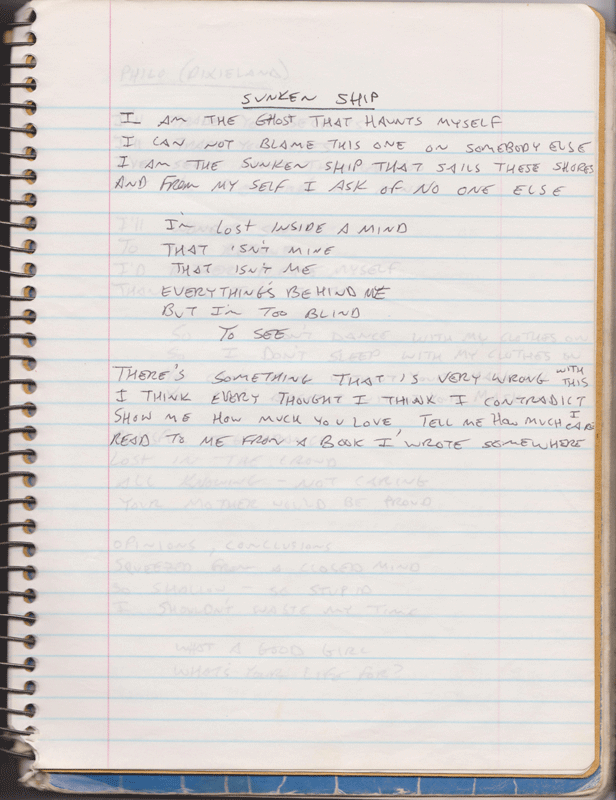 PHILO (DIXIELAND)
SUNKEN SHIP
I AM THE GHOST THAT HAUNTS MYSELF
I CAN NOT BLAME THIS ONE ON SOMEBODY ELSE
I AM THE SUNKEN SHIP THAT SAILS THESE SHORES
AND FROM MY SELF I ASK OF NO ONE ELSE
I'M LOST INSIDE A MIND
THAT ISN'T MINE
THAT ISN'T ME
EVERYTHING'S BEHIND ME
BUT I'M TOO BLIND
TO SEE
DANCE WITH MY CLOTHES ON
I DON'T SLEEP WITH MY CLOTHES ON
THERE'S SOMETHING THAT IS VERY WRONG WITH THIS
I THINK EVERY THOUGHT I THINK I CONTRADICT
SHOW ME HOW MUCH YOU LOVE, TELL ME HOW MUCH I CARE
READ TO ME FROM A BOOK I WROTE SOMEWHERE
LOST IN THE CROWD
ALL KNOWING - NOT CARING
YOUR MOTHER WOULD BE PROUD
OPINIONS, CONCLUSIONS
SQUEEZED FROM A CLOSED MIND
SO SHALLOW - SO STUPID
I SHOULDN'T WASTE MY TIME
WHAT A GOOD GIRL
WHAT'S YOUR LIFE FOR?